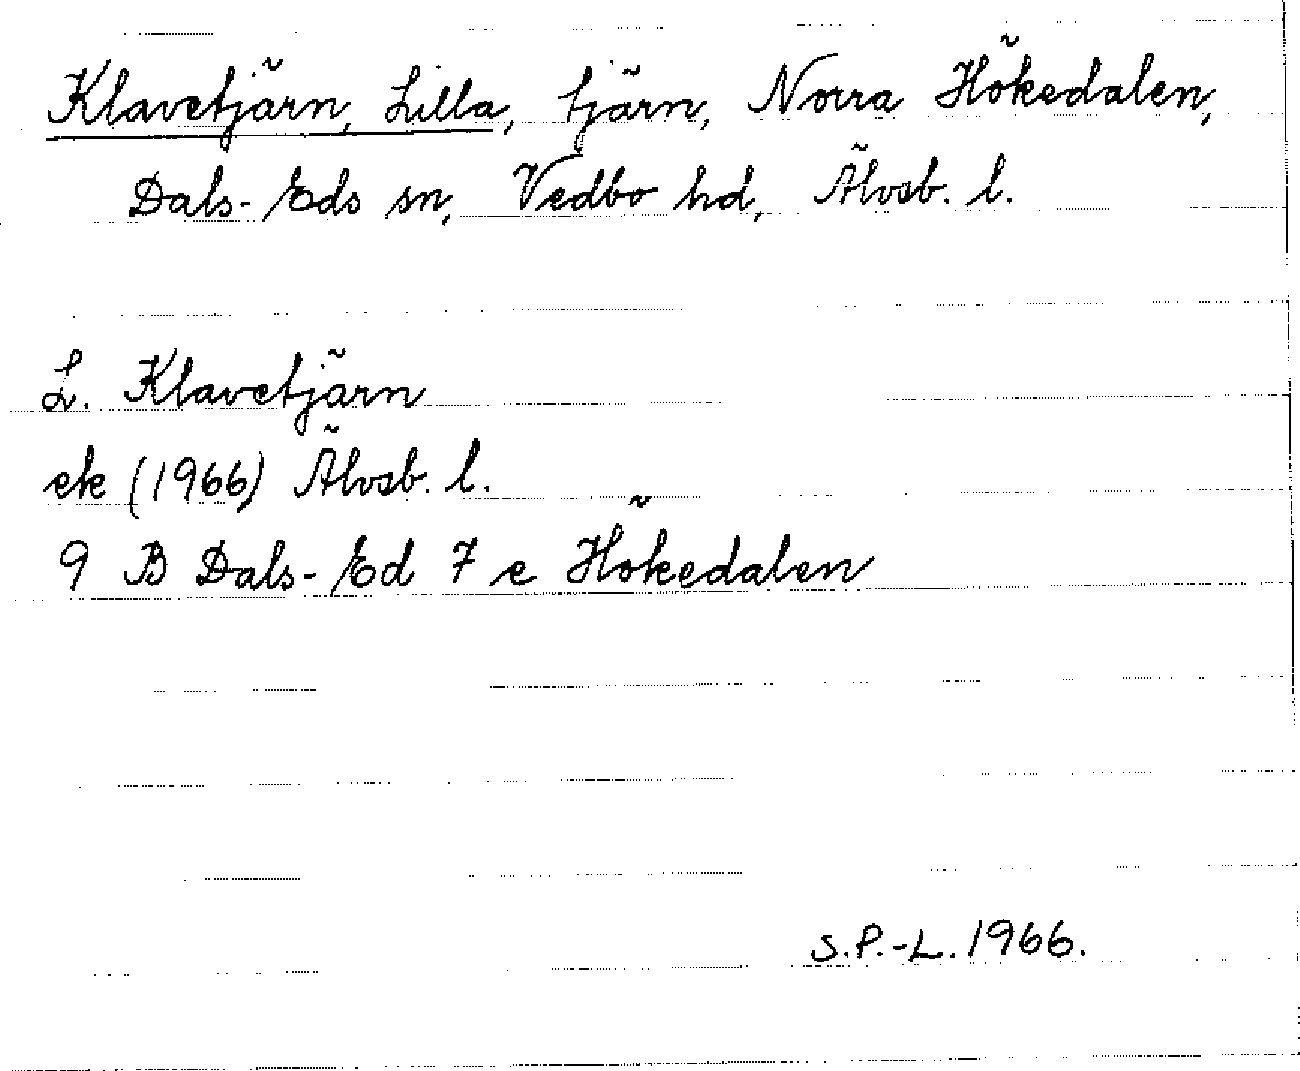 Klavetjärn, Lilla, tjärn, Norra Hökedalen,
Dals-Eds sn, Vedbo hd, Älvsb. l.
L. Klavetjärn
ek (1966) Älvsb. l.
9 B Dals-Ed 7 e Hökedalen
S.P.-L. 1966.